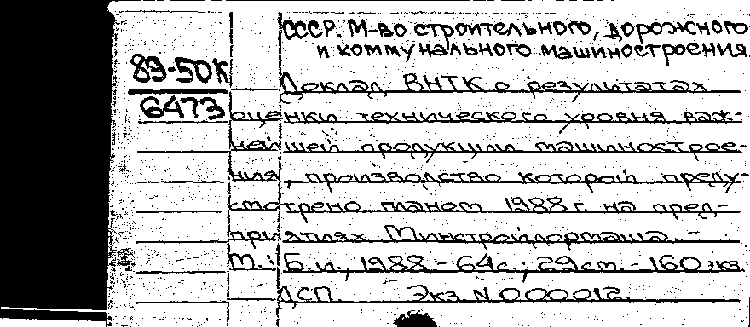 СССР. М-во строительного, дорожного
и коммунального машиностроения
89-50к
6473
Доклад ВНТК о результатах
оценки технического уровня важ-
нейшей продукции машинострое-
ния, производство которой преду-
смотрено планом 1988 г. на пред-
приятиях Минстройдормаша. -
М.: Б.и., 1988. - 64 с.; 29 см. - 160 экз.
ДСП. Экз. N 000012.